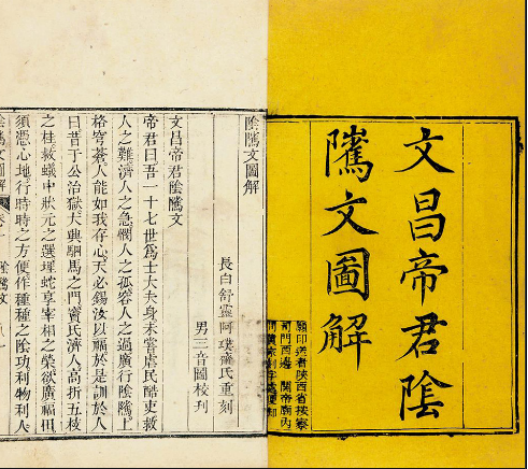 文昌帝君陰
騭文圖解
願印送者陝西省按察
司門西邊 關帝廟內
便知
陰騭文圖解
長白舒靈阿璞齋氏重刻
男三音圖校刋
文昌帝君陰騭文
帝君曰吾一十七世爲士大夫身未嘗虐民酷吏救
人之難濟人之急憫人之孤容人之過廣行陰騭上
格穹蒼人能如我存心天必錫汝以福於是訓於人
曰昔于公治獄大興駟馬之門竇氏濟人高折五枝
之桂救蟻中狀元之選埋蛇享宰相之榮欲廣福田
須憑心地行時時之方便作種種之陰功利物利人
陰騭文圖解 卷一 陰騭文